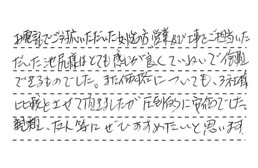 お電話でご対応いただいた女性の方、営業及び工事をご担当いた
だいた池尻様はとても感じが良くていねいで信頼
できるものでした。また価格についても、3社程
比較させて頂きましたが圧倒的に安価でした。
親類、友人等にぜひすすめたいと思います。